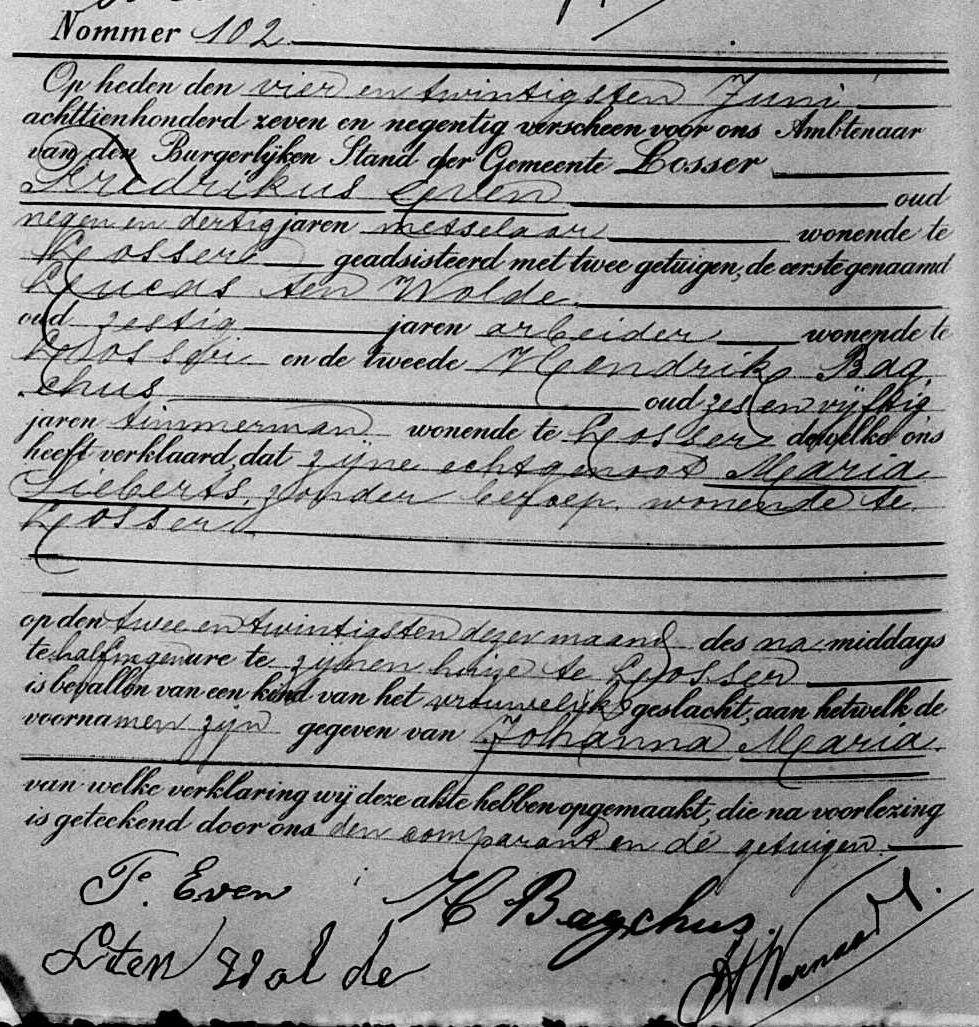 Nommer 102
Op heden den vier en twintigsten Juni
achttienhonderd zeven en negentig verscheen voor ons Ambtenaar
van den Burgerlijken Stand der Gemeente Losser
Fredrikus Even oud
negen en dertig jaren metselaar wonende te
Losser geadsisteerd met twee getuigen, de eerste genaamd
Lucas ten Wolde
oud zestig jaren arbeider wonende te
Losser en de tweede Hendrik Bag
chus oud zes en vijftig
jaren timmerman wonende te Losser dewelke ons
heeft verklaard, dat zijne echtgenoot Maria
Sieberts, zonder beroep, wonende te
Losser
op den twee en twintigsten dezer maand des na middags
te half negen ure te zijnen huize te Losser
is bevallen van een kind van het vrouwelijk geslacht, aan hetwelk de
voornamen zijn gegeven van Johanna Maria
van welke verklaring wij deze akte hebben opgemaakt, die na voorlezing
is geteekend door ons den comparant en de getuigen.
F. Even H Bagchus.
L ten Wolde